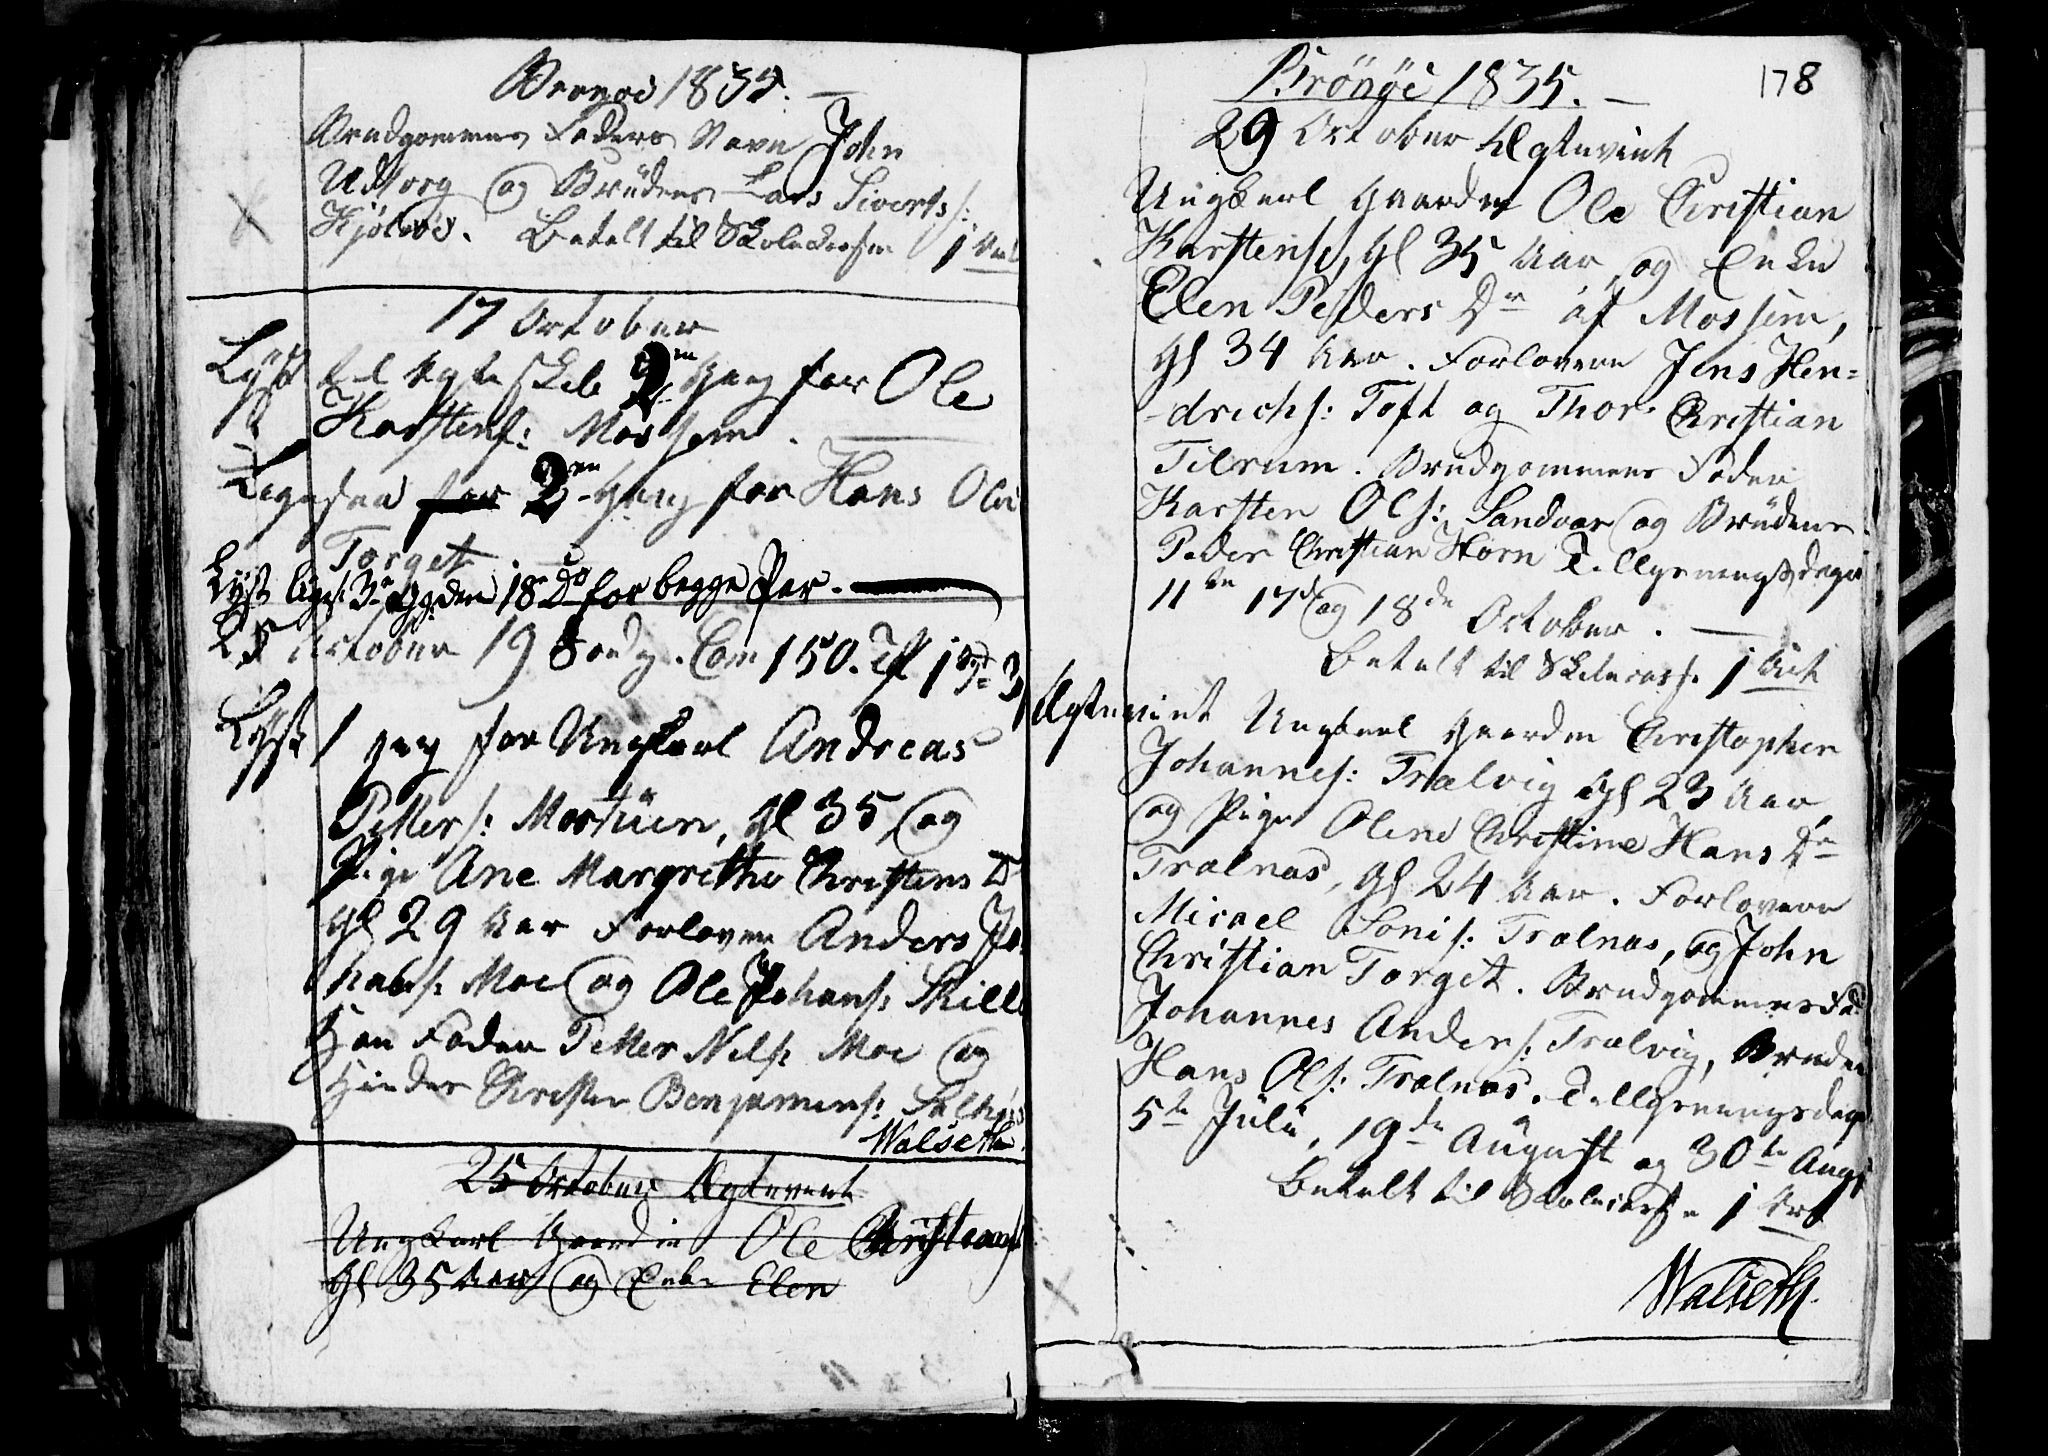 Brönöe 1835.
Brudgommens Faders Navn John
Udtorg og Brüdens Lars Siverts:
Kjölsöe. Betalt til Skolecassen 1 Ort
17 October
Lyst til Egteskab 2en Gang for Ole
Karstens: Mossem.
Ligesaa for 2en Gang for Hans Ols:
Torget
Lyst liges: 3e Gg den 18 Do for begge Par.
25 October 19 Sondg. Com 150.
Lyst 1 Gang for Ungkarl Andreas
Petters: Mortüen, gl 35, og
Pige Ane Margrethe Christens D
gl 29 Aar Forlovere Anders Jo
hans: Moe og Ole Johans: Skille
Hans Fader Petter Nils: Moe og
Hindes Christen Benjamins: Salhus
Walseth
25 October Egteviet
Ungkarl Gaardm Ole Christians
gl 35 Aar og Enke Elen
Brönöe 1835.
178
29 October Egteviet
Ungkarl Gaardm Ole Christian
Karstens, gl 35 Aar, og Enke
Elen Peders Dr af Mossem,
gl 34 Aar. Forlovere Jens Hen=
-drichs: Toft og Thor Christian
Tilrum. Brudgommens Fader
Karsten Ols: Sandvær og Brüdens
Peder Christian Horn Tillysningsdage
11te 17de og 18de October.
Betalt til Skolecass. 1 Ort
Egteviet Ungkarl Gaardm Christopher
Johannes: Trælvig gl 23 Aar,
og Pige Olene Christine Hans Dr
Trælnæs, gl 24 Aar. Forlovere
Micael Tönis: Trælnæs, og John
Christian Torget. Brudgommens Fad
Johannes Anders: Trælvig, Brudens
Hans Ols: Trælnæs. Tillysningsdage
5te Juli, 19de August og 30te Aug
Betalt til Skolecassen 1 Ort
Walseth